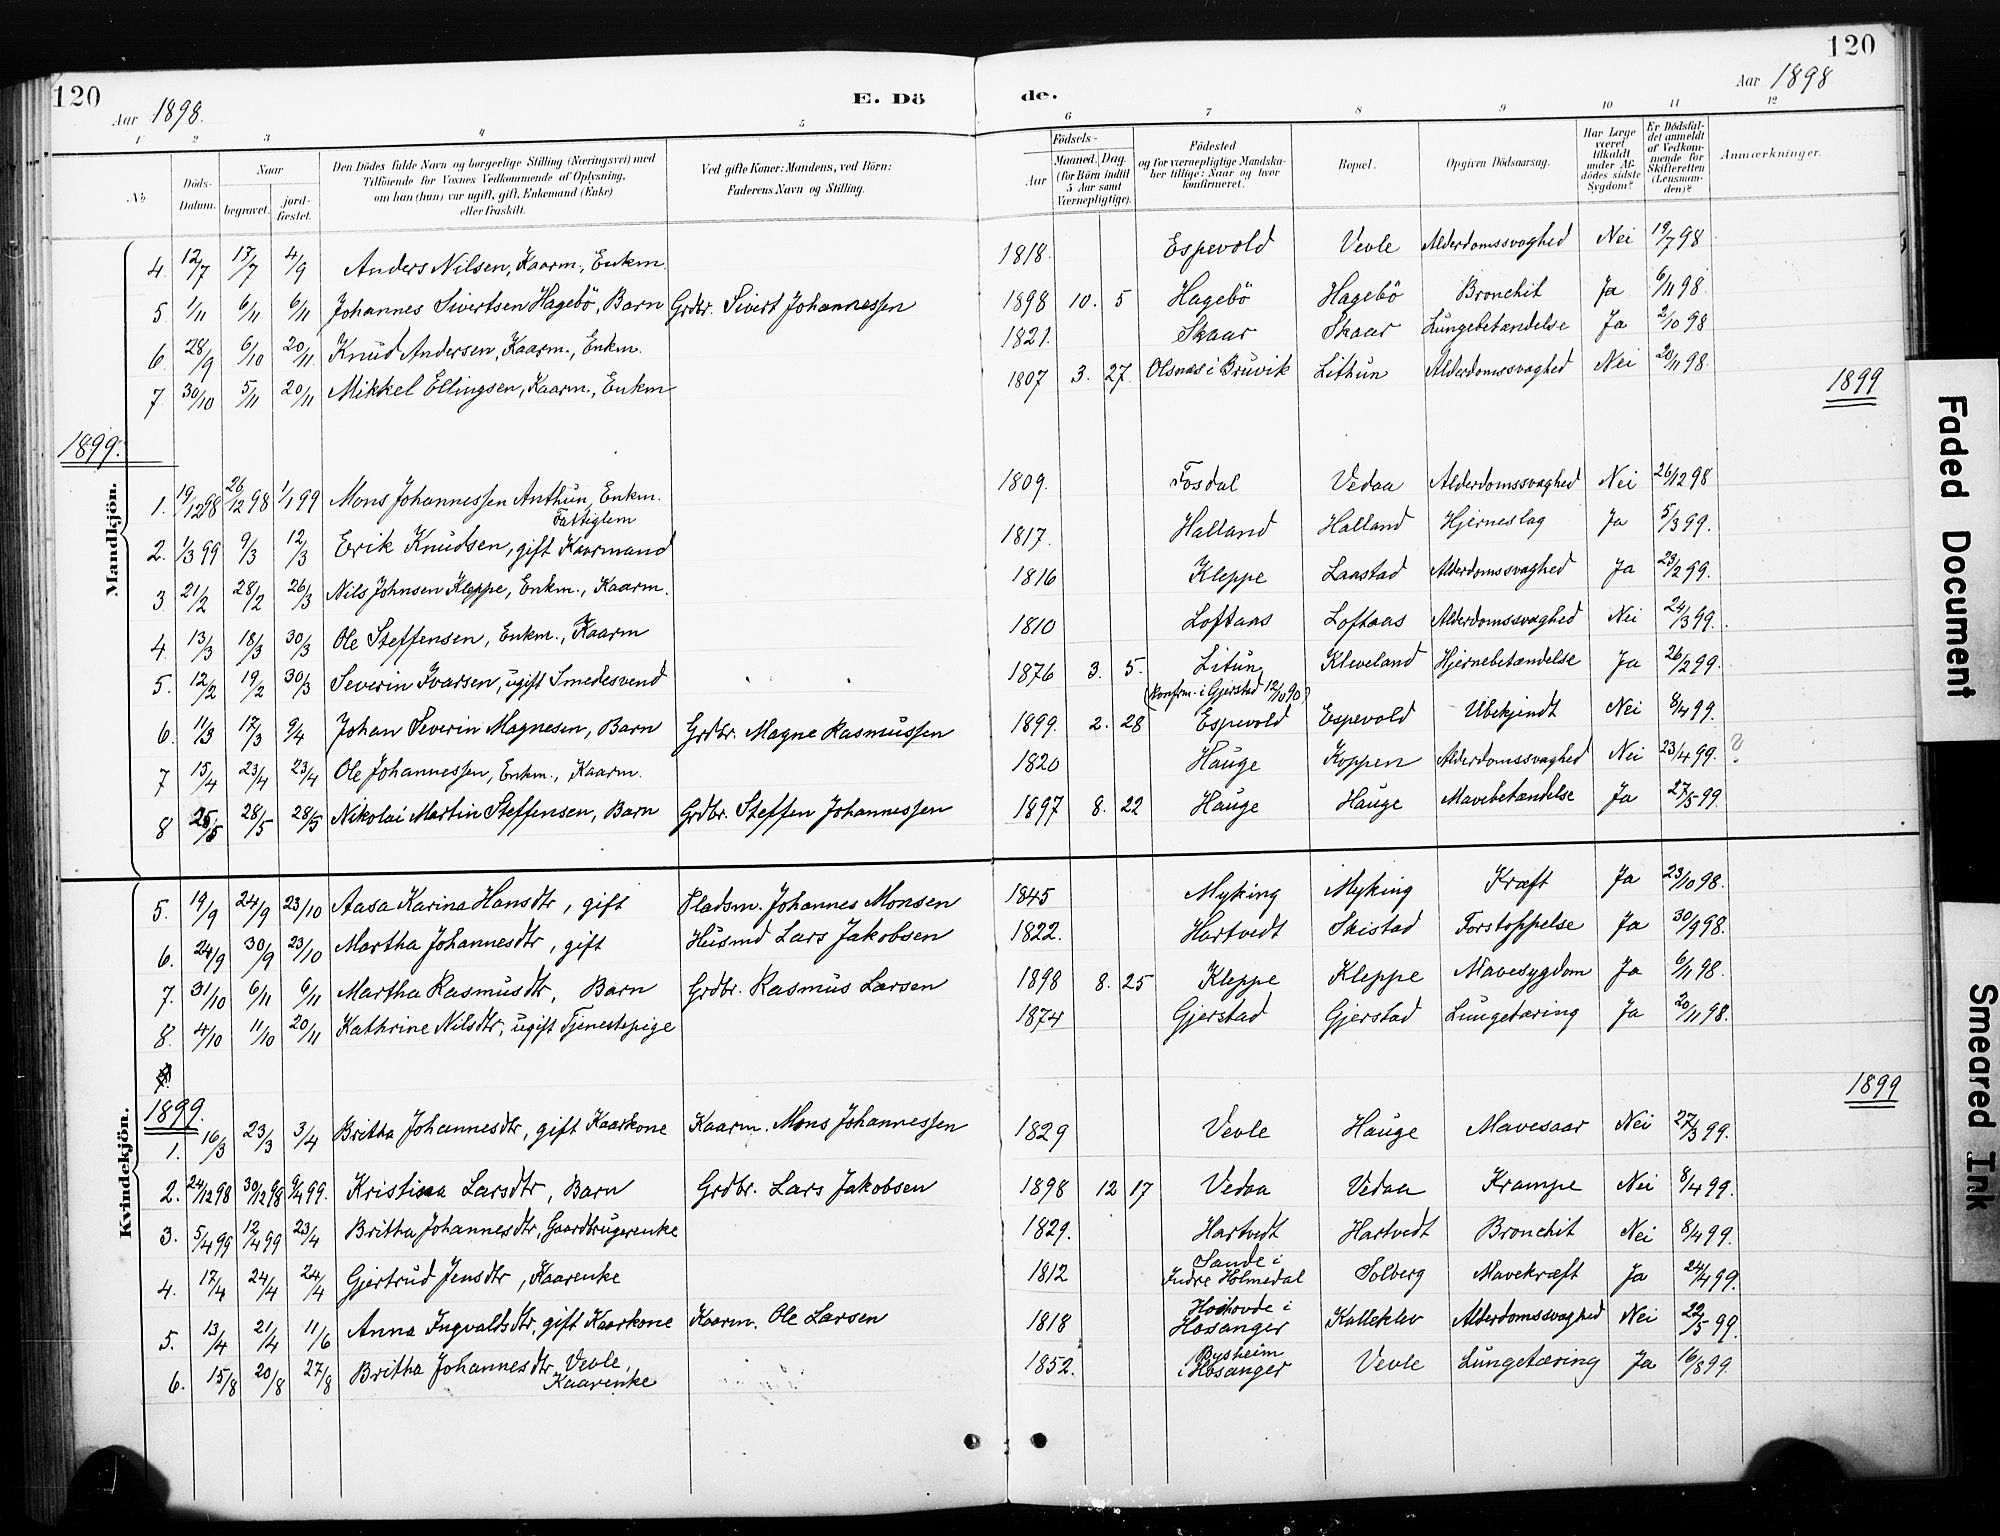 120
Aar 1898.
E. Dö
de.
Aar 1898
120
1 2 3 4 5 6 7 8 9 10 11 12
No
Döds-Datum.
Naar
begravet.
jord-fæstet.
Den Dödes fulde Navn og borgerlige Stilling (Næringsvei) med
Tilföiende for Voxnes Vedkommende af Oplysning,
om han (hun) var ugift, gift, Enkemand (Enke)
eller fraskilt.
Ved gifte Koner: Mandens, ved Börn:
Faderens Navn og Stilling.
Födsels-
Aar
Maaned. Dag.
(for Börn indtil
5 Aar samt
Værnepligtige).
Födested
og for værnepligtige Mandska-
ber tillige: Naar og hvor
konfirmeret.
Bopæl.
Opgiven Dödsaarsag.
Har Læge
været
tilkaldt
under Af-
dödes sidste
Sygdom?
Er Dödsfal-
det anmeldt
af Vedkom-
mende for
Skifteretten
(Lensman-
den)?
Anmærkninger.
Mandkjön.
4. 12/7 17/7 4/9 Anders Nilsen, Kaarm., Enkm. 1818. Espevold Vevle Alderdomssvaghed Nei 19/7 98
5 1/11 6/11 6/11 Johannes Sivertsen Hagebö, Barn Grdbr. Sivert Johannessen 1898 10. 5 Hagebö Hagebö Bronchit Ja 6/11 98.
6. 28/9 6/10 20/11 Knud Andersen, Kaarm., Enkm. 1821. Skaar Skaar Lungebetændelse Ja 2/10 98
7. 30/10 5/11 20/11 Mikkel Ellingsen, Kaarm., Enkm 1807 3. 27. Olsnæs i Bruvik Lithun Alderdomssvaghed Nei 20/11 98.
1899
1899.
1. 19/12 98 26/12 98 1/1 99 Mons Johannessen Anthun, Enkm. Fattiglem 1809. Fosdal Vedaa Alderdomssvaghed Nei 26/12 98
2. 1/3 99 9/3 12/3 Erik Knudsen, gift Kaarmand 1817. Halland Halland Hjerneslag Ja 5/3 99.
3 21/2 28/2 26/3 Nils Johnsen Kleppe, Enkm., Kaarm. 1816 Kleppe Laastad Alderdomssvaghed Ja 23/2 99.
4. 13/3 18/3 30/3 Ole Steffensen, Enkm., Kaarm 1810 Loftaas Loftaas Alderdomssvaghed Nei 24/3 99.
5. 12/2 19/2 30/3 Severin Ivarsen, ugift Smedesvend 1876 3. 5. Litun Kleveland Hjernebetændelse Ja 26/2 99.
(konfrm. i Gjerstad 12/10 90)
6. 11/3 17/3 9/4 Johan Severin Magnesen, Barn Grdbr. Magne Rasmussen 1899. 2. 28 Espevold Espevold Ubekjendt Nei 8/4 99.
7 15/4 23/4 23/4 Ole Johannessen, Enkm., Kaarm. 1820 Hauge Koppen Alderdomssvaghed Nei 23/4 99. ?
8 25/5 28/5 28/5 Nikolai Martin Steffensen, Barn Grdbr. Steffen Johannessen 1897 8. 22 Hauge Hauge Mavebetændelse Ja 27/5 99
Kvindekjön.
5. 19/9 24/9 23/10 Aasa Karina Hansdtr, gift Pladsm. Johannes Monsen 1845 Myking Myking Kræft Ja 23/10 98.
6. 24/9 30/9 23/10 Martha Johannesdtr, gift Husmd Lars Jakobsen 1822. Hartvedt Skistad Forstoppelse Ja 30/9 98.
7. 31/10 6/11 6/11 Martha Rasmusdtr, Barn Grdbr. Rasmus Larsen 1898 8. 25 Kleppe Kleppe Mavesygdom Ja 6/11 98.
8. 4/10 11/10 20/11 Kathrine Nilsdtr, ugift Tjenestepige 1874 Gjerstad Gjerstad Lungetæring Ja 20/11 98.
1899.
1899
1. 16/3 23/3 3/4 Britha Johannesdtr, gift Kaarkone Kaarm. Mons Johannessen 1829 Vevle Hauge Mavesaar Nei 27/3 99.
2. 24/12 98 30/12 98 9/4 99. Kristina Larsdtr, Barn Grdbr. Lars Jakobsen 1898 12 17 Vedaa Vedaa Krampe Nei 8/4 99.
3. 5/4 99 12/4 99 23/4 Britha Johannesdtr, Gaardbrugerenke 1829. Hartvedt Hartvedt Bronchit Nei 8/4 99.
4. 17/4 24/4 24/4 Gjertrud Jensdtr, Kaarenke 1812 Sande i Indre Holmedal Solberg Mavekræft Ja 24/4 99.
5. 13/4 21/4 11/6 Anna Ingvaldsdtr, gift Kaarkone Kaarm. Ole Larsen 1818 i Hosanger Kalleklev Alderdomssvaghed Nei 22/5 99.
6. 15/8 20/8 27/8 Britha Johannesdtr Vevle, Kaarenke 1852. Bysheim i Hosanger Vevle Lungetæring Ja 16/8 99.
Faded Document
Smeared Ink